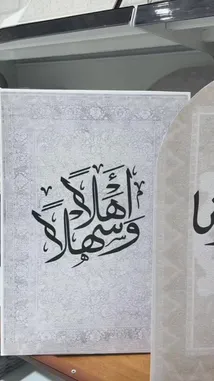 أَهْلاً
وَسَهْلاً